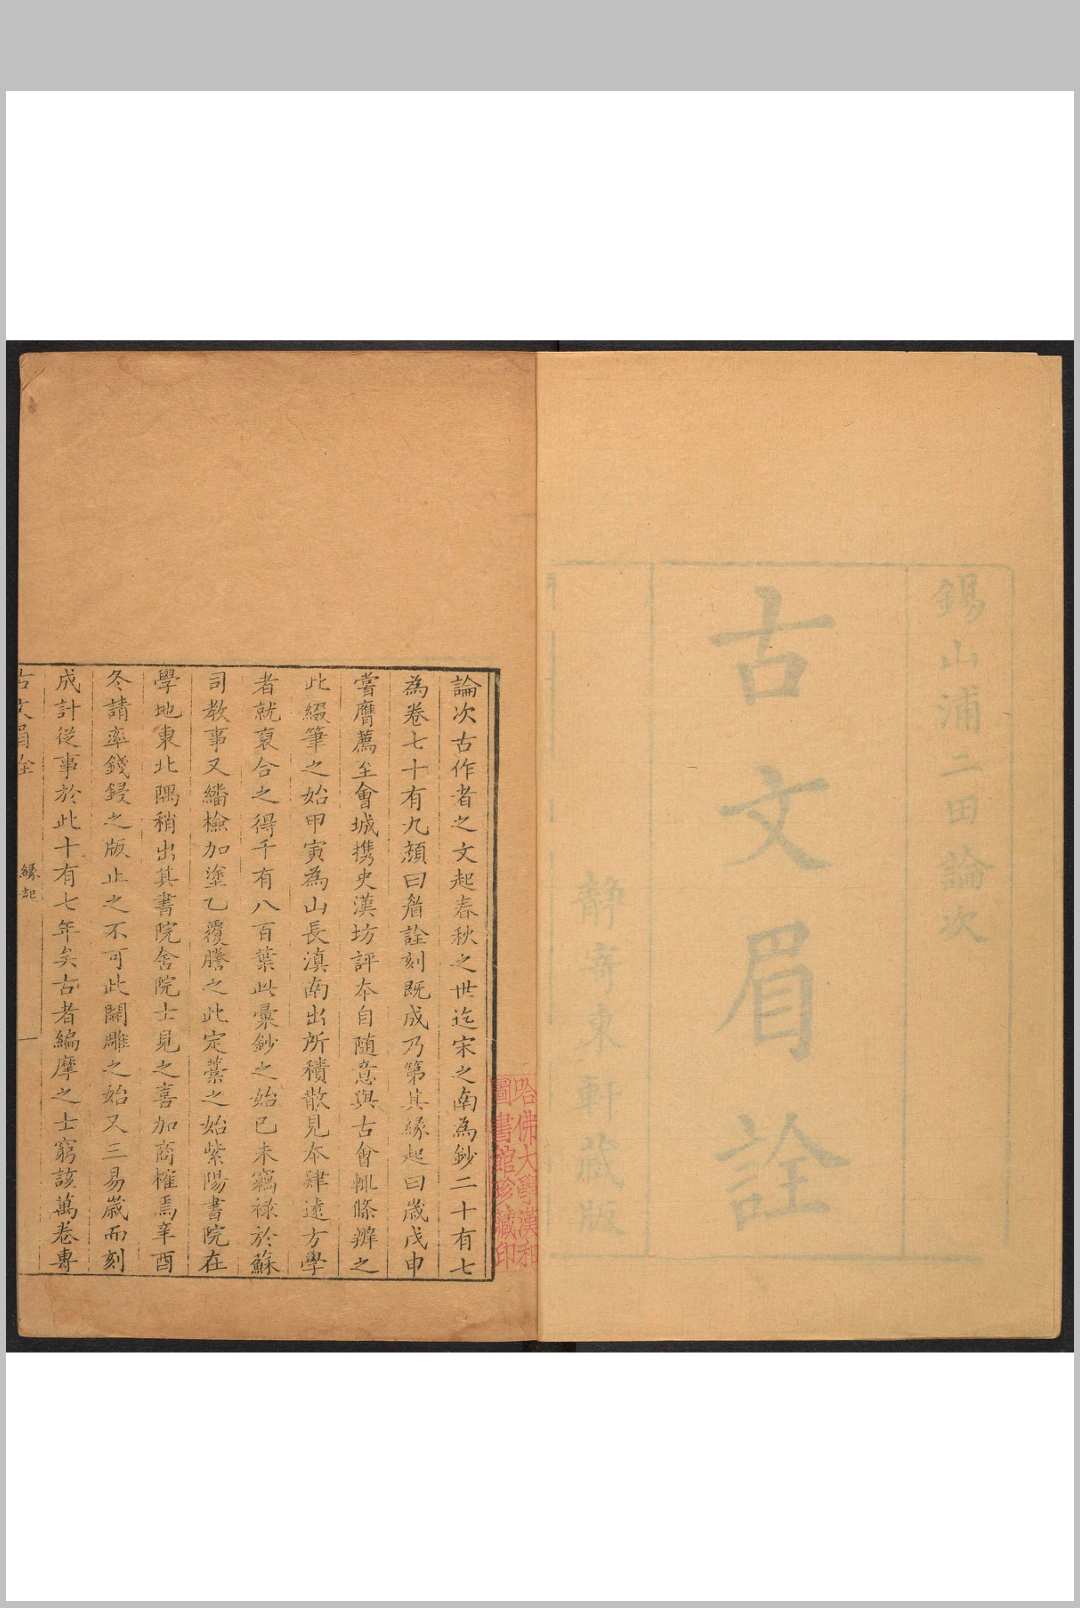 錫山浦二田論次
古文眉詮
靜寄東軒藏版
哈佛大學漢和
圖書館珍藏印
論次古作者之文起春秋之世迄宋之南為鈔二十有七
為卷七十有九顏曰眉詮刻既成乃第其緣起曰歲戊申
嘗膺薦至會城攜史漢坊評本自隨意與古會輒條辨之
此綴筆之始甲寅為山長滇南出所積散見本肄遠方學
者就裒合之得千有八百葉此彙鈔之始己未竊祿於蘇
司教事又繙檢加塗乙覆謄之此定藁之始紫陽書院在
學地東北隅稍出其書院舍院士見之喜加商榷焉辛酉
冬請率錢鋟之版止之不可此開雕之始又三易歲而刻
成計從事於此十有七年矣古者編摩之士窮該萬卷專
古文眉詮
緣起
一